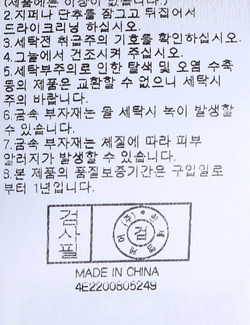 (제품에는 이상이 없습니다.)
2.지퍼나 단추를 잠그고 뒤집어서
드라이크리닝 하십시오.
3.세탁전 취급주의 기호를 확인하십시오.
4.그늘에서 건조시켜 주십시오.
5.세탁부주의로 인한 탈색 및 오염 수축
등의 제품은 교환할 수 없으니 세탁시
주의 바랍니다.
6.금속 부자재는 물 세탁시 녹이 발생할
수 있습니다.
7.금속 부자재는 체질에 따라 피부
알러지가 발생할 수 있습니다.
8.본 제품의 품질보증기간은 구입일로
부터 1년입니다.
검
사
필
(주)
검
MADE IN CHINA
4E2200805249